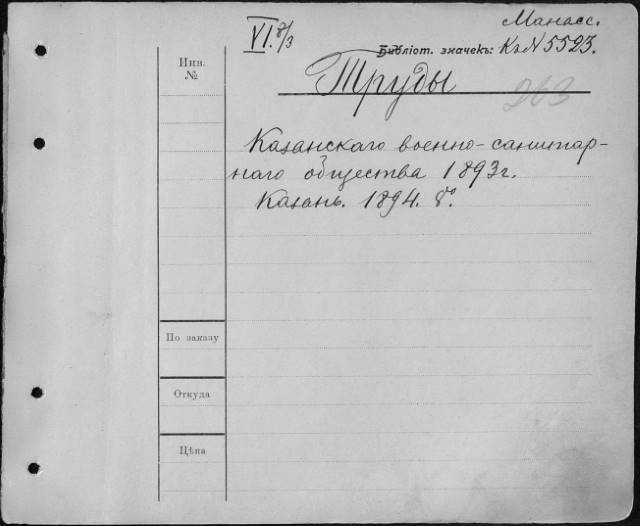 Манасс.
VI. 8/3
Библіот. значекъ: Кг № 5523.
Инв.
№
Труды
263
Казанскаго военно-санитар-
наго общества 1893г.
Казань. 1894. 8º.
По заказу
Откуда
Цѣна